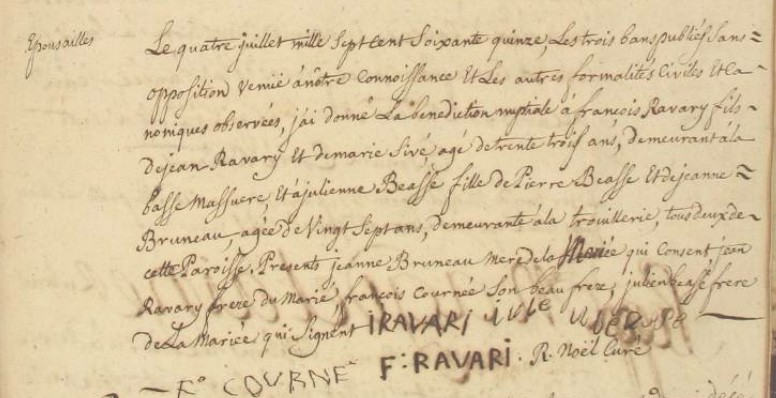 Epousailles
Le quatre juillet mille Sept Cent Soixante quinze, Les trois bans publiés Sans =
opposition venüe à nôtre Connoissance Et Les autres formalités Civiles Et Ca-
noniques observées, j'ai donné La bénédiction nuptiale à françois Ravary fils-
de jean Ravary Et de marie Sivé, agé de trente trois ans, demeurant à la
basse Massuere, Et à julienne Beasse fille de Pierre Beasse Et de jeanne =
Bruneau, agée de Vingt Sept ans, demeurante à la trouillerie, tous deux de-
cette Paroisse, Presents jeanne Bruneau Mere de la Mariée qui Consent, jean
Ravary frere du Marié, françois Cournée Son beau frere, julien beasse frere
de La Mariée qui Signent IRAVARI
F: RAVARI. R. Noël Curé
F° COURNE